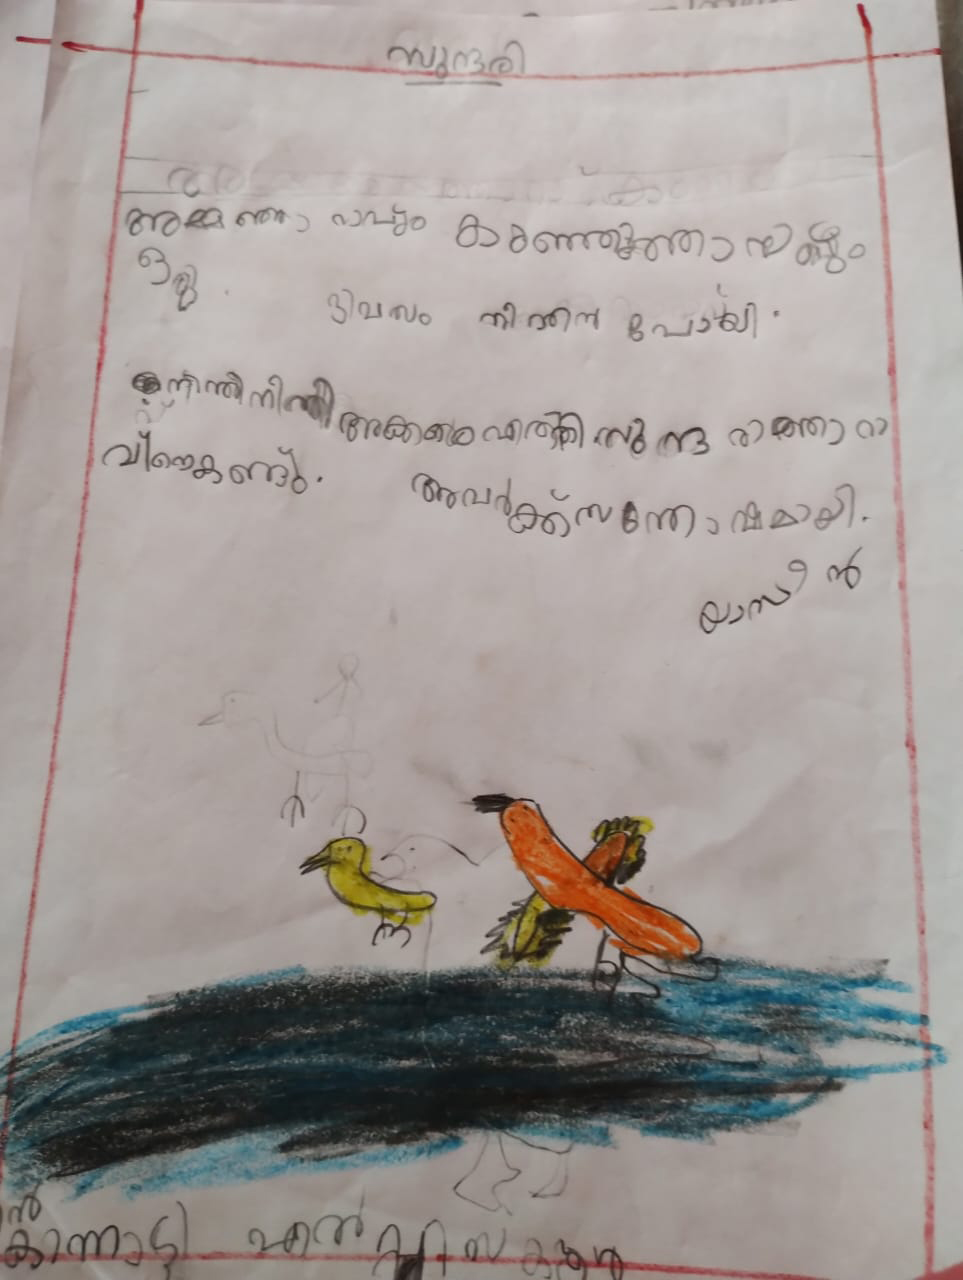 സുന്ദരി
അമ്മ ഞ്ഞാറാവും കാ കുഞ്ഞുത്താ
ഒരു
ദിവസം നിന്തിന പോയി.
നിന്തിനിന്തി അക്കരെ എത്തി സുന്ദരാത്താറാ
വിനെകണ്ടു. അവർക്ക് സന്തോഷമായി.
യാസീൻ
ൻ
എൽ പി സ്കൂൾ